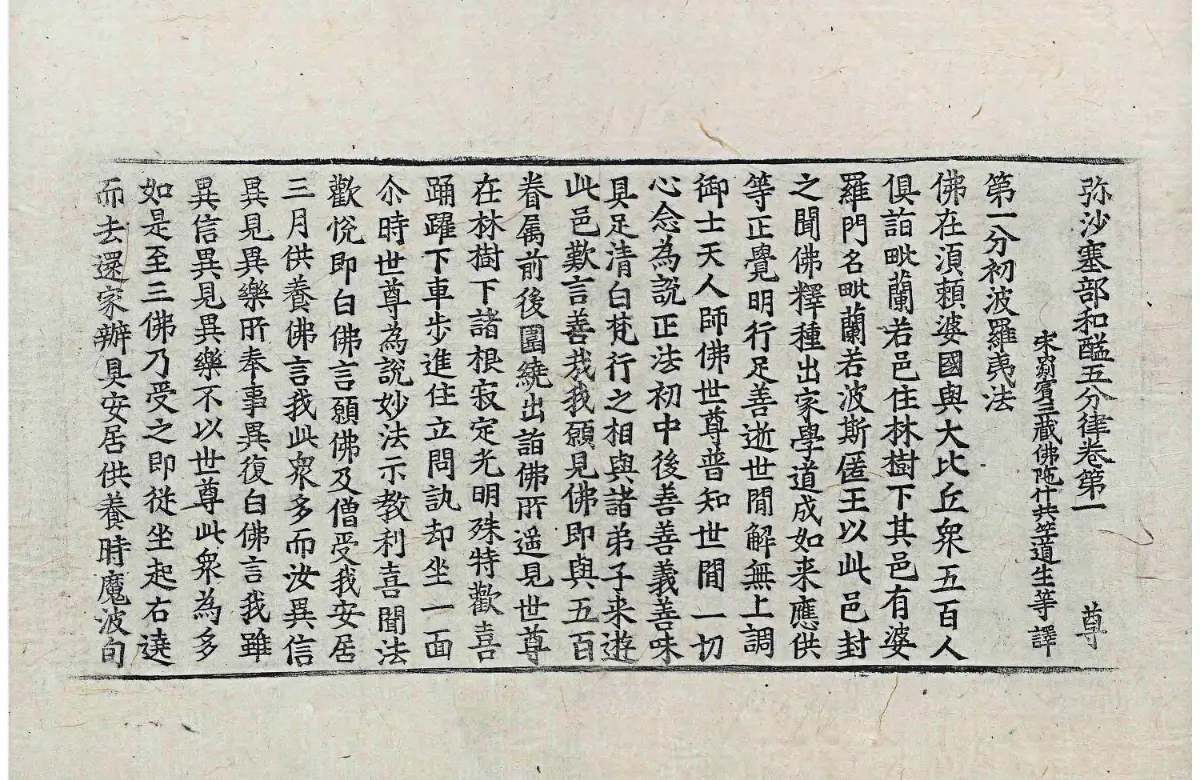 弥沙塞部和醯五分律卷第一 尊
宋罽賓三藏佛陁什共笁道生等譯
第一分初波羅夷法
佛在湏頼婆國與大比丘衆五百人
俱詣毗蘭若邑住林樹下其邑有婆
羅門名毗蘭若波斯匿王以此邑封
之聞佛釋種出家學道成如来應供
等正覺明行足善逝世閒解無上調
御士天人師佛世尊普知世閒一切
心念為說正法初中後善善義善味
具足清白梵行之相與諸弟子来遊
此邑歎言善哉我願見佛即與五百
眷属前後圍繞出詣佛所遥見世尊
在林樹下諸根寂定光明殊特歡喜
踊躍下車步進住立問訊却坐一面
尒時世尊為說妙法示教利喜聞法
歡悅即白佛言願佛及僧受我安居
三月供養佛言我此衆多而汝異信
異見異樂所奉事異復白佛言我雖
異信異見異樂不以世尊此衆為多
如是至三佛乃受之即從坐起右遶
而去還家辦具安居供養時魔波旬